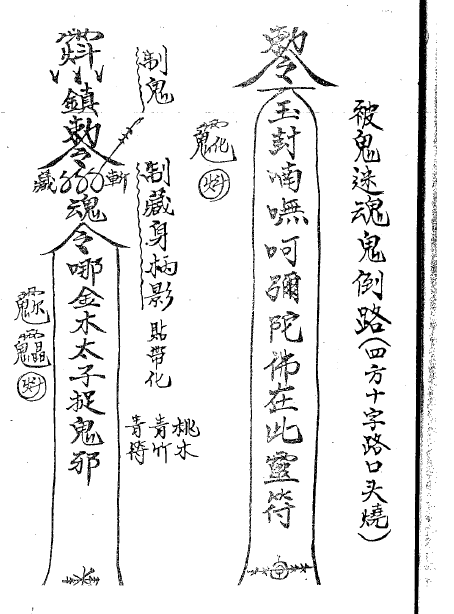 被鬼迷魂鬼倒路(四方十字路口头燒)
勅令
玉封喃嘸呵彌陀佛在此靈符
制鬼
制藏身柄影
貼帶化
桃木
青竹
青符
鎮勅令
斬
藏
魂
令
哪金木太子捉鬼邪